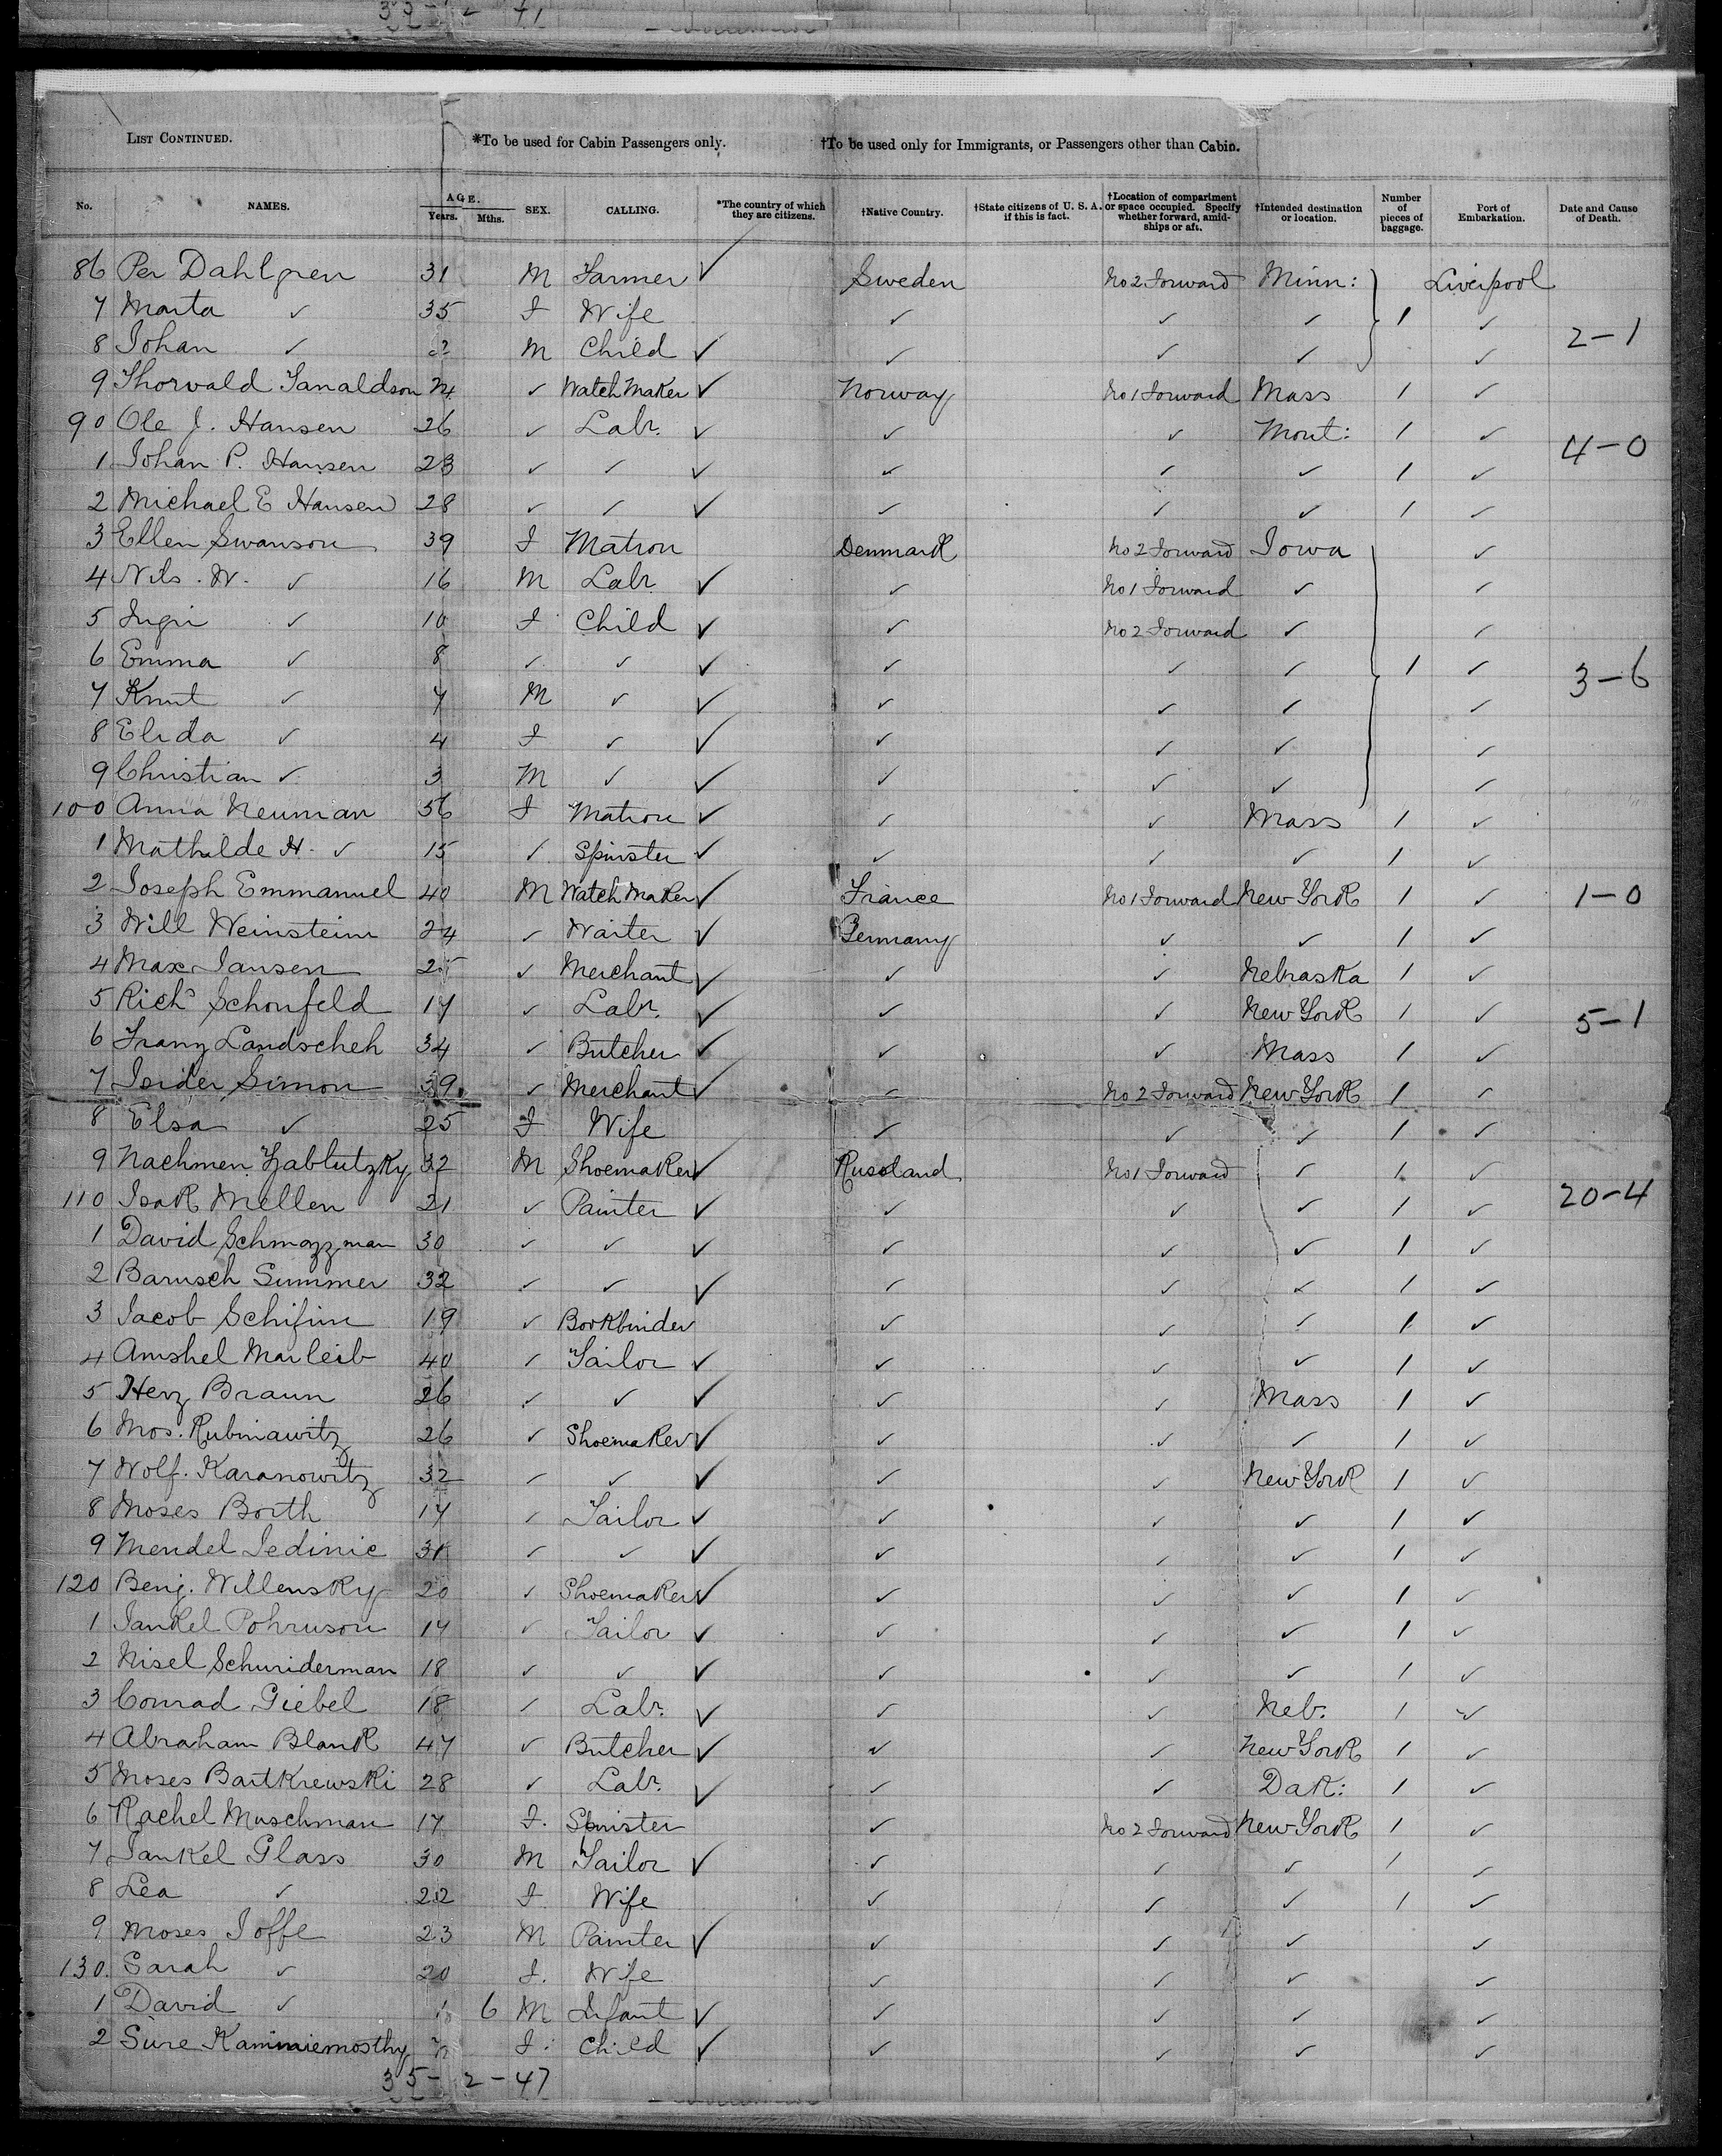 35-2-47
LIST CONTINUED. *To be used for Cabin Passengers only. †To be used only for Immigrants, or Passengers other than Cabin.
No. NAMES. AGE. Years. Mths. SEX. CALLING. *The country of which they are citizens. †Native Country. †State citizens of U. S. A. if this is fact. †Location of compartment or space occupied. Specify whether forward, amidships or aft. †Intended destination or location. Number of pieces of baggage. Port of Embarkation. Date and Cause of Death.
86 Per Dahlgren 31 M Farmer ✓ Sweden No 2 Forward Minn: Liverpool
7 Marta ✓ 35 F Wife ✓ ✓ ✓ 1 ✓ 2-1
8 Johan ✓ M Child ✓ ✓ ✓ ✓ ✓
9 Thorvald 24 ✓ Watch Maker ✓ Norway No 1 Forward Mass 1 ✓
90 Ole J. Hansen 26 ✓ Labr. ✓ ✓ ✓ Mont: 1 ✓ 4-0
1 Johan P. Hansen 23 ✓ ✓ ✓ ✓ ✓ ✓ 1 ✓
2 Michael E Hansen 28 ✓ ✓ ✓ ✓ ✓ ✓ 1 ✓
3 Ellen Swanson 39 F Matron Denmark No 2 Forward Iowa ✓
4 Nils. W. ✓ 16 M Labr ✓ ✓ No 1 Forward ✓ ✓
5 Ingri ✓ 10 F Child ✓ ✓ No 2 Forward ✓ ✓
6 Emma ✓ 8 ✓ ✓ ✓ ✓ ✓ ✓ 1 ✓ 3-6
7 Knut ✓ 7 M ✓ ✓ ✓ ✓ ✓ ✓
8 Elida ✓ 4 F ✓ ✓ ✓ ✓ ✓ ✓
9 Christian ✓ 3 M ✓ ✓ ✓ ✓ ✓ ✓
100 Anna Neuman 56 F Matron ✓ ✓ ✓ Mass 1 ✓
1 Mathilde H. ✓ 15 ✓ Spinster ✓ ✓ ✓ ✓ 1 ✓
2 Joseph Emmanuel 40 M Watch Maker ✓ France No 1 Forward New York 1 ✓ 1-0
3 Will Weinstein 24 ✓ Waiter ✓ Germany ✓ ✓ 1 ✓
4 Max Jansen 25 ✓ Merchant ✓ ✓ ✓ Nebraska 1 ✓
5 Richd Schonfeld 17 ✓ Labr. ✓ ✓ ✓ New York 1 ✓ 5-1
6 Franz Landscheh 34 ✓ Butcher ✓ ✓ ✓ Mass 1 ✓
7 Isider Simon 39 ✓ Merchant ✓ ✓ No 2 Forward New York 1 ✓
8 Elsa ✓ 25 F Wife ✓ ✓ ✓ 1 ✓
9 Nachmen Zablutzky 32 M Shoemaker ✓ Russland No 1 Forward ✓ 1 ✓
110 Isak Mellen 21 ✓ Painter ✓ ✓ ✓ ✓ 1 ✓ 20-4
1 David Schmozzman 30 ✓ ✓ ✓ ✓ ✓ ✓ 1 ✓
2 Barusch Summer 32 ✓ ✓ ✓ ✓ ✓ ✓ 1 ✓
3 Jacob Schifin 19 ✓ Bookbinder ✓ ✓ ✓ 1 ✓
4 Amshel Marleib 40 ✓ Tailor ✓ ✓ ✓ ✓ 1 ✓
5 Herz Braun 26 ✓ ✓ ✓ ✓ ✓ Mass 1 ✓
6 Mos. Rubinawitz 26 ✓ Shoemaker ✓ ✓ ✓ ✓ 1 ✓
7 Wolf. Karanowitz 32 ✓ ✓ ✓ ✓ ✓ New York 1 ✓
8 Moses Borth 17 ✓ Tailor ✓ ✓ ✓ ✓ 1 ✓
9 Mendel Jedinic 31 ✓ ✓ ✓ ✓ ✓ ✓ 1 ✓
120 Benj. Willensky 20 ✓ Shoemaker ✓ ✓ ✓ ✓ 1 ✓
1 Jankel Pohruson 17 ✓ Tailor ✓ ✓ ✓ ✓ 1 ✓
2 Nisel Schuriderman 18 ✓ ✓ ✓ ✓ ✓ ✓ 1 ✓
3 Conrad Giebel 18 ✓ Labr. ✓ ✓ ✓ Neb. 1 ✓
4 Abraham Blank 47 ✓ Butcher ✓ ✓ ✓ New York 1 ✓
5 Moses Bartkrewski 28 ✓ Labr. ✓ ✓ ✓ Dak: 1 ✓
6 Rachel Muschman 17 F. Spinster ✓ No 2 Forward New York 1 ✓
7 Jankel Glass 30 M Tailor ✓ ✓ ✓ ✓ 1 ✓
8 Lea ✓ 22 F Wife ✓ ✓ ✓ 1 ✓
9 Moses Joffe 23 M Painter ✓ ✓ ✓ ✓ ✓
130. Sarah ✓ 20 F. Wife ✓ ✓ ✓ ✓
1 David ✓ 6 M Infant ✓ ✓ ✓ ✓ ✓
2 Sure F. Child ✓ ✓ ✓ ✓ ✓
35-2-47